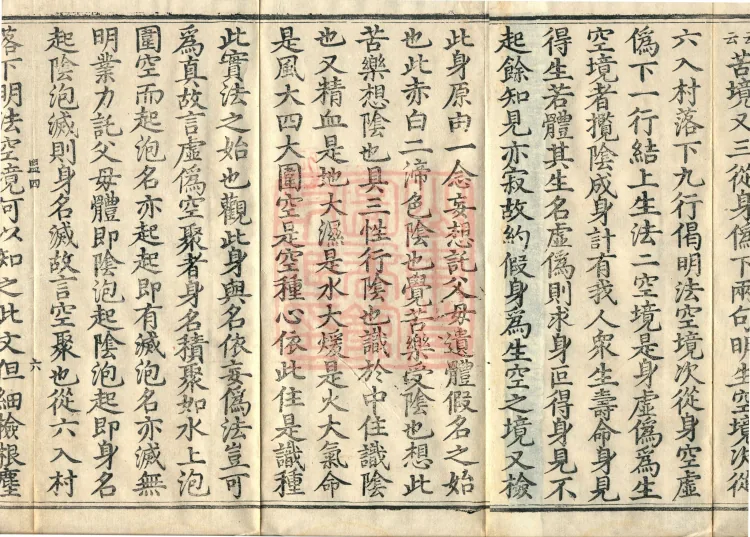 苦境又三從身僞下兩句明生空境次從
六入村落下九行偈明法空境次從身空虛
僞下一行結上生法二空境是身虛僞爲生
空境者攬陰成身計有我人衆生壽命身見
得生若體其生名虛僞則求身叵得身見不
起餘知見亦寂故約假身爲生空之境又檢
此身原由一念妄想託父母遺體假名之始
也此赤白二渧色陰也覺苦樂受陰也想此
苦樂想陰也具三性行陰也識於中住識陰
也又精血是地大濕是水大煖是火大氣命
是風大四大圍空是空種心依此住是識種
此實法之始也觀此身與名依妄僞法豈可
爲真故言虛僞空聚者身名積聚如水上泡
圍空而起泡名亦起起即有滅泡名亦滅無
明業力託父母體即陰泡起陰泡起即身名
起陰泡滅則身名滅故言空聚也從六入村
六
落下明法空境可以知之此文但細檢根塵